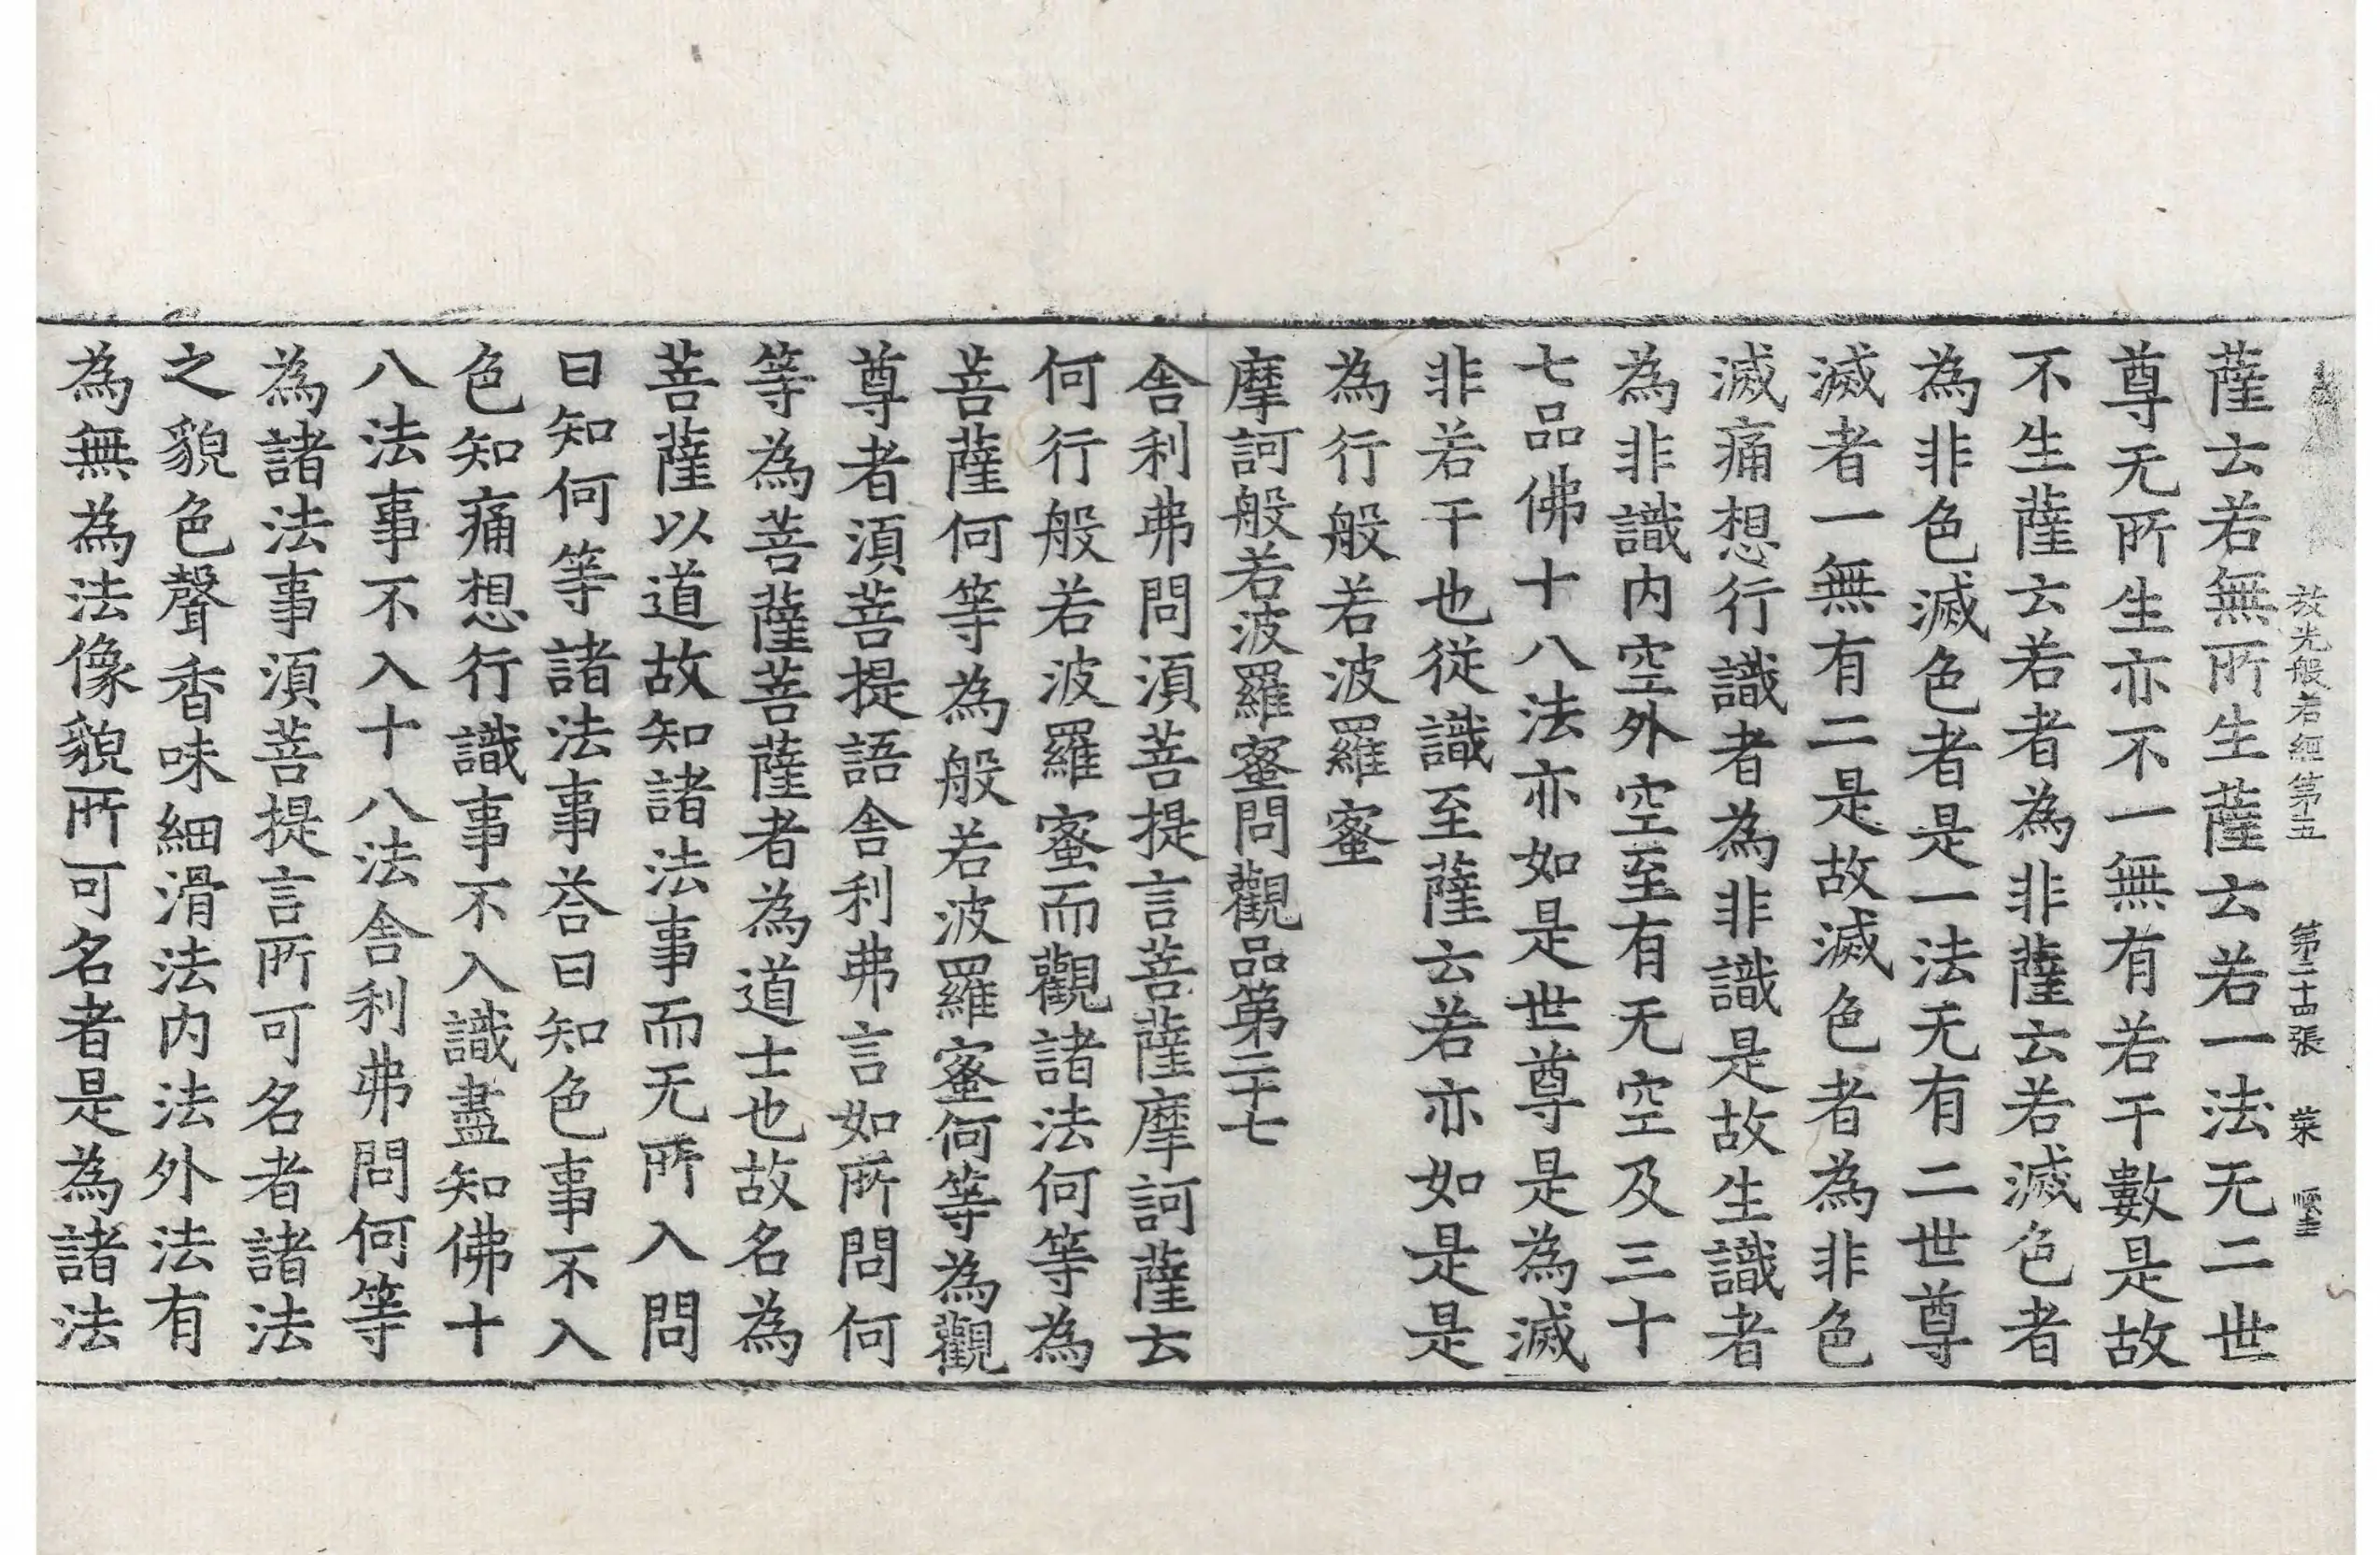 放光般若經第五 第二十四張 菜
薩云若無所生薩云若一法无二世
尊无所生亦不一無有若干數是故
不生薩云若者為非薩云若滅色者
為非色滅色者是一法无有二世尊
滅者一無有二是故滅色者為非色
滅痛想行識者為非識是故生識者
為非識內空外空至有无空及三十
七品佛十八法亦如是世尊是為滅
非若干也從識至薩云若亦如是是
為行般若波羅蜜
摩訶般若波羅蜜問觀品第二十七
舍利弗問湏菩提言菩薩摩訶薩云
何行般若波羅蜜而觀諸法何等為
菩薩何等為般若波羅蜜何等為觀
尊者湏菩提語舍利弗言如所問何
等為菩薩菩薩者為道士也故名為
菩薩以道故知諸法事而无所入問
曰知何等諸法事荅曰知色事不入
色知痛想行識事不入識盡知佛十
八法事不入十八法舍利弗問何等
為諸法事湏菩提言所可名者諸法
之貌色聲香味細滑法內法外法有
為無為法像貌所可名者是為諸法